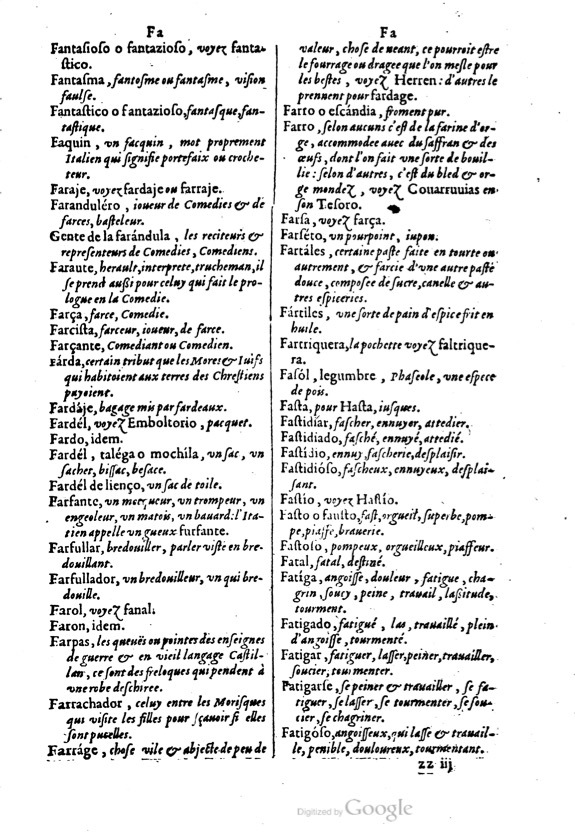 Fa
Fantasioso o fantazioso, voyez fanta-
stico.
Fantasma, fantosme ou fantasme, vision
faulse.
Fantastico o fantazioso, fantasque, fan-
tastique.
Faquin, vn facquin, mot proprement
Italien qui signifie portefaix ou croche-
teur.
Faraje, voyez fardaje ou farraje.
Faranduléro, ioueur de Comedies & de
farces, basteleur.
Gente de la farándula, les reciteurs &
representeurs de Comedies, Comediens.
Faraute, herault, interprete, trucheman, il
se prend außi pour celuy qui fait le pro-
logue en la Comedie.
Farça, farce, Comedie.
Farcista, farceur, ioueur, de farce.
Farçante, Comediant ou Comedien.
Fárda, certain tribut que les Mores & Iuifs
qui habitoient aux terres des Chrestiens
payoient.
Fardáje, bagage mis par fardeaux.
Fardél, voyez Emboltorio, pacquet.
Fardo, idem.
Fardél, taléga o mochíla, vn sac, vn
sachet, bissac, besace.
Fardél de lienço, vn sac de toile.
Farfante, vn mocqueur, vn trompeur, vn
engeoleur, vn matois, vn bauard: l'Ita-
tien appelle vn gueux furfante.
Farfullar, bredouiller, parler viste en bre-
douillant.
Farfullador, vn bredouilleur, vn qui bre-
douille.
Farol, voyez fanal.
Faron, idem.
Farpas, les queuës ou pointes des enseignes
de guerre & en vieil langage Castil-
lan, ce sont des freloques qui pendent à
vne robe deschiree.
Farrachador, celuy entre les Morisques
qui visite les filles pour sçauoir si elles
sont pucelles.
Farráge, chose vile & abjecte de peu de
Fa
valeur, chose de neant, ce pourroit estre
le fourrage ou dragee que l'on mesle pour
les bestes, voyez Herren: d'autres le
prennent pour fardage.
Farro o escándia, froment pur.
Farro, selon aucuns c'est de la farine d'or-
ge, accommodee auec du saffran & des
œufs, dont l'on fait vne sorte de bouil-
lie: selon d'autres, c'est du bled & or-
ge mondez, voyez Couarruuias en
son Tesoro.
Farsa, voyez farça.
Farséto, vn pourpoint, iupon.
Fartáles, certaine paste faite en tourte ou
autrement, & farcie d'vne autre pasté
douce, composee de sucre, canelle & au-
tres espiceries.
Fártiles, vne sorte de pain d'espice frit en
huile.
Fartriquera, la pochette voyez faltrique-
ra.
Fasól, legumbre, Phaseole, vne espece
de pois.
Fasta, pour Hasta, iusques.
Fastidiar, fascher, ennuyer, attedier.
Fastidiado, fasché, ennuyé, attedié.
Fastídio, ennuy, fascherie, desplaisir.
Fastidióso, fascheux, ennuyeux, desplai-
sant.
Fastio, voyez Hastío.
Fasto o fausto, fast, orgueil, superbe, pom-
pe, piaffe, brauerie.
Fastoso, pompeux, orgueilleux, piaffeur.
Fatal, fatal, destiné.
Fatiga, angoisse, douleur, fatigue, cha-
grin, soucy, peine, trauail, laßitude,
tourment.
Fatigado, fatigué, las, trauaillé, plein
d'angoisse, tourmenté.
Fatigar, fatiguer, lasser, peiner, trauailler,
soucier, tourmenter.
Fatigarse, se peiner & trauailler, se fa-
tiguer, se lasser, se tourmenter, se sou-
cier, se chagriner.
Fatigóso, angoisseux, qui lasse & trauail-
le, penible, douloureux, tourmentant.
zz iij
Digitized by Google